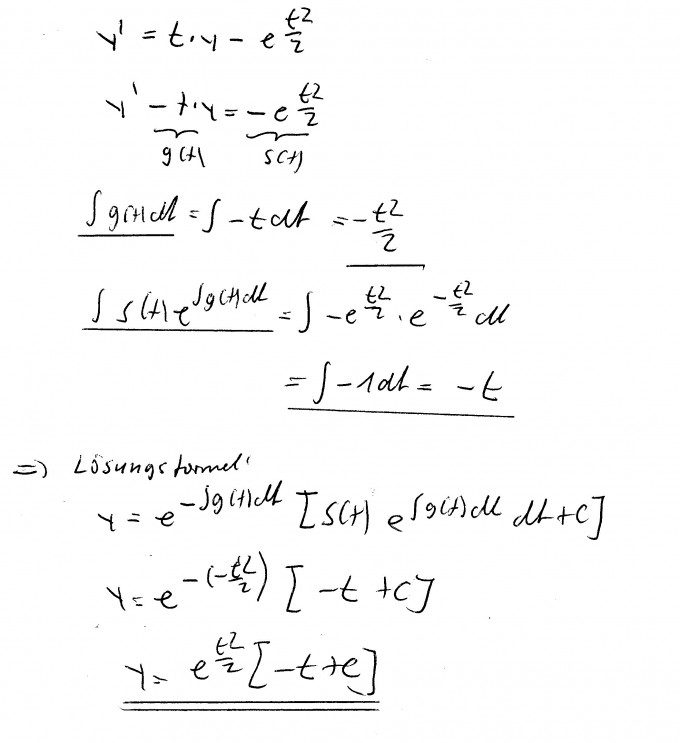 y' = t·y − e^(t²/2)
y' − t·y = −e^(t²/2)
g(t) s(t)
∫g(t)dt = ∫−t dt = −t²/2
∫s(t)e^(∫g(t)dt) = ∫−e^(t²/2) · e^(−t²/2) dt
= ∫−1dt = −t
=) Lösungsformel:
y = e^(−∫g(t)dt) [s(t) e^(∫g(t)dt) dt+c]
y = e^(−(−t²/2)) [−t +c]
y = e^(t²/2) [−t+c]